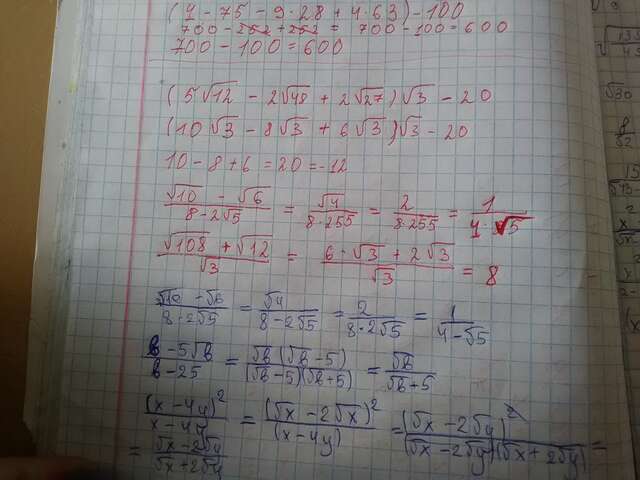 (4 - 75 - 9·28 + 4·63) - 100
700 - 252 + 252 = 700 - 100 = 600
700 - 100 = 600
(5√12 - 2√48 + 2√27)√3 - 20
(10√3 - 8√3 + 6√3)√3 - 20
10 - 8 + 6 = 20 = -12
(√10 - √6)/(8 - 2√5) = √4/(8·255) = 2/(8·255) = 1/(4·√5)
(√108 + √12)/√3 = (6·√3 + 2√3)/√3 = 8
(√10 - √6)/(8 - 2√5) = √4/(8 - 2√5) = 2/(8·2√5) = 1/(4 - √5)
(b - 5√b)/(b - 25) = √b(√b - 5)/(√b - 5)(√b + 5) = √b/(√b + 5)
(x - 4y)²/(x - 4y) = (√x - 2√x)²/(x - 4y) = (√x - 2√y)²/(√x - 2√y)(√x + 2√y) =
= (√x - 2√y)/(√x + 2√y)
√30
8/√2
15